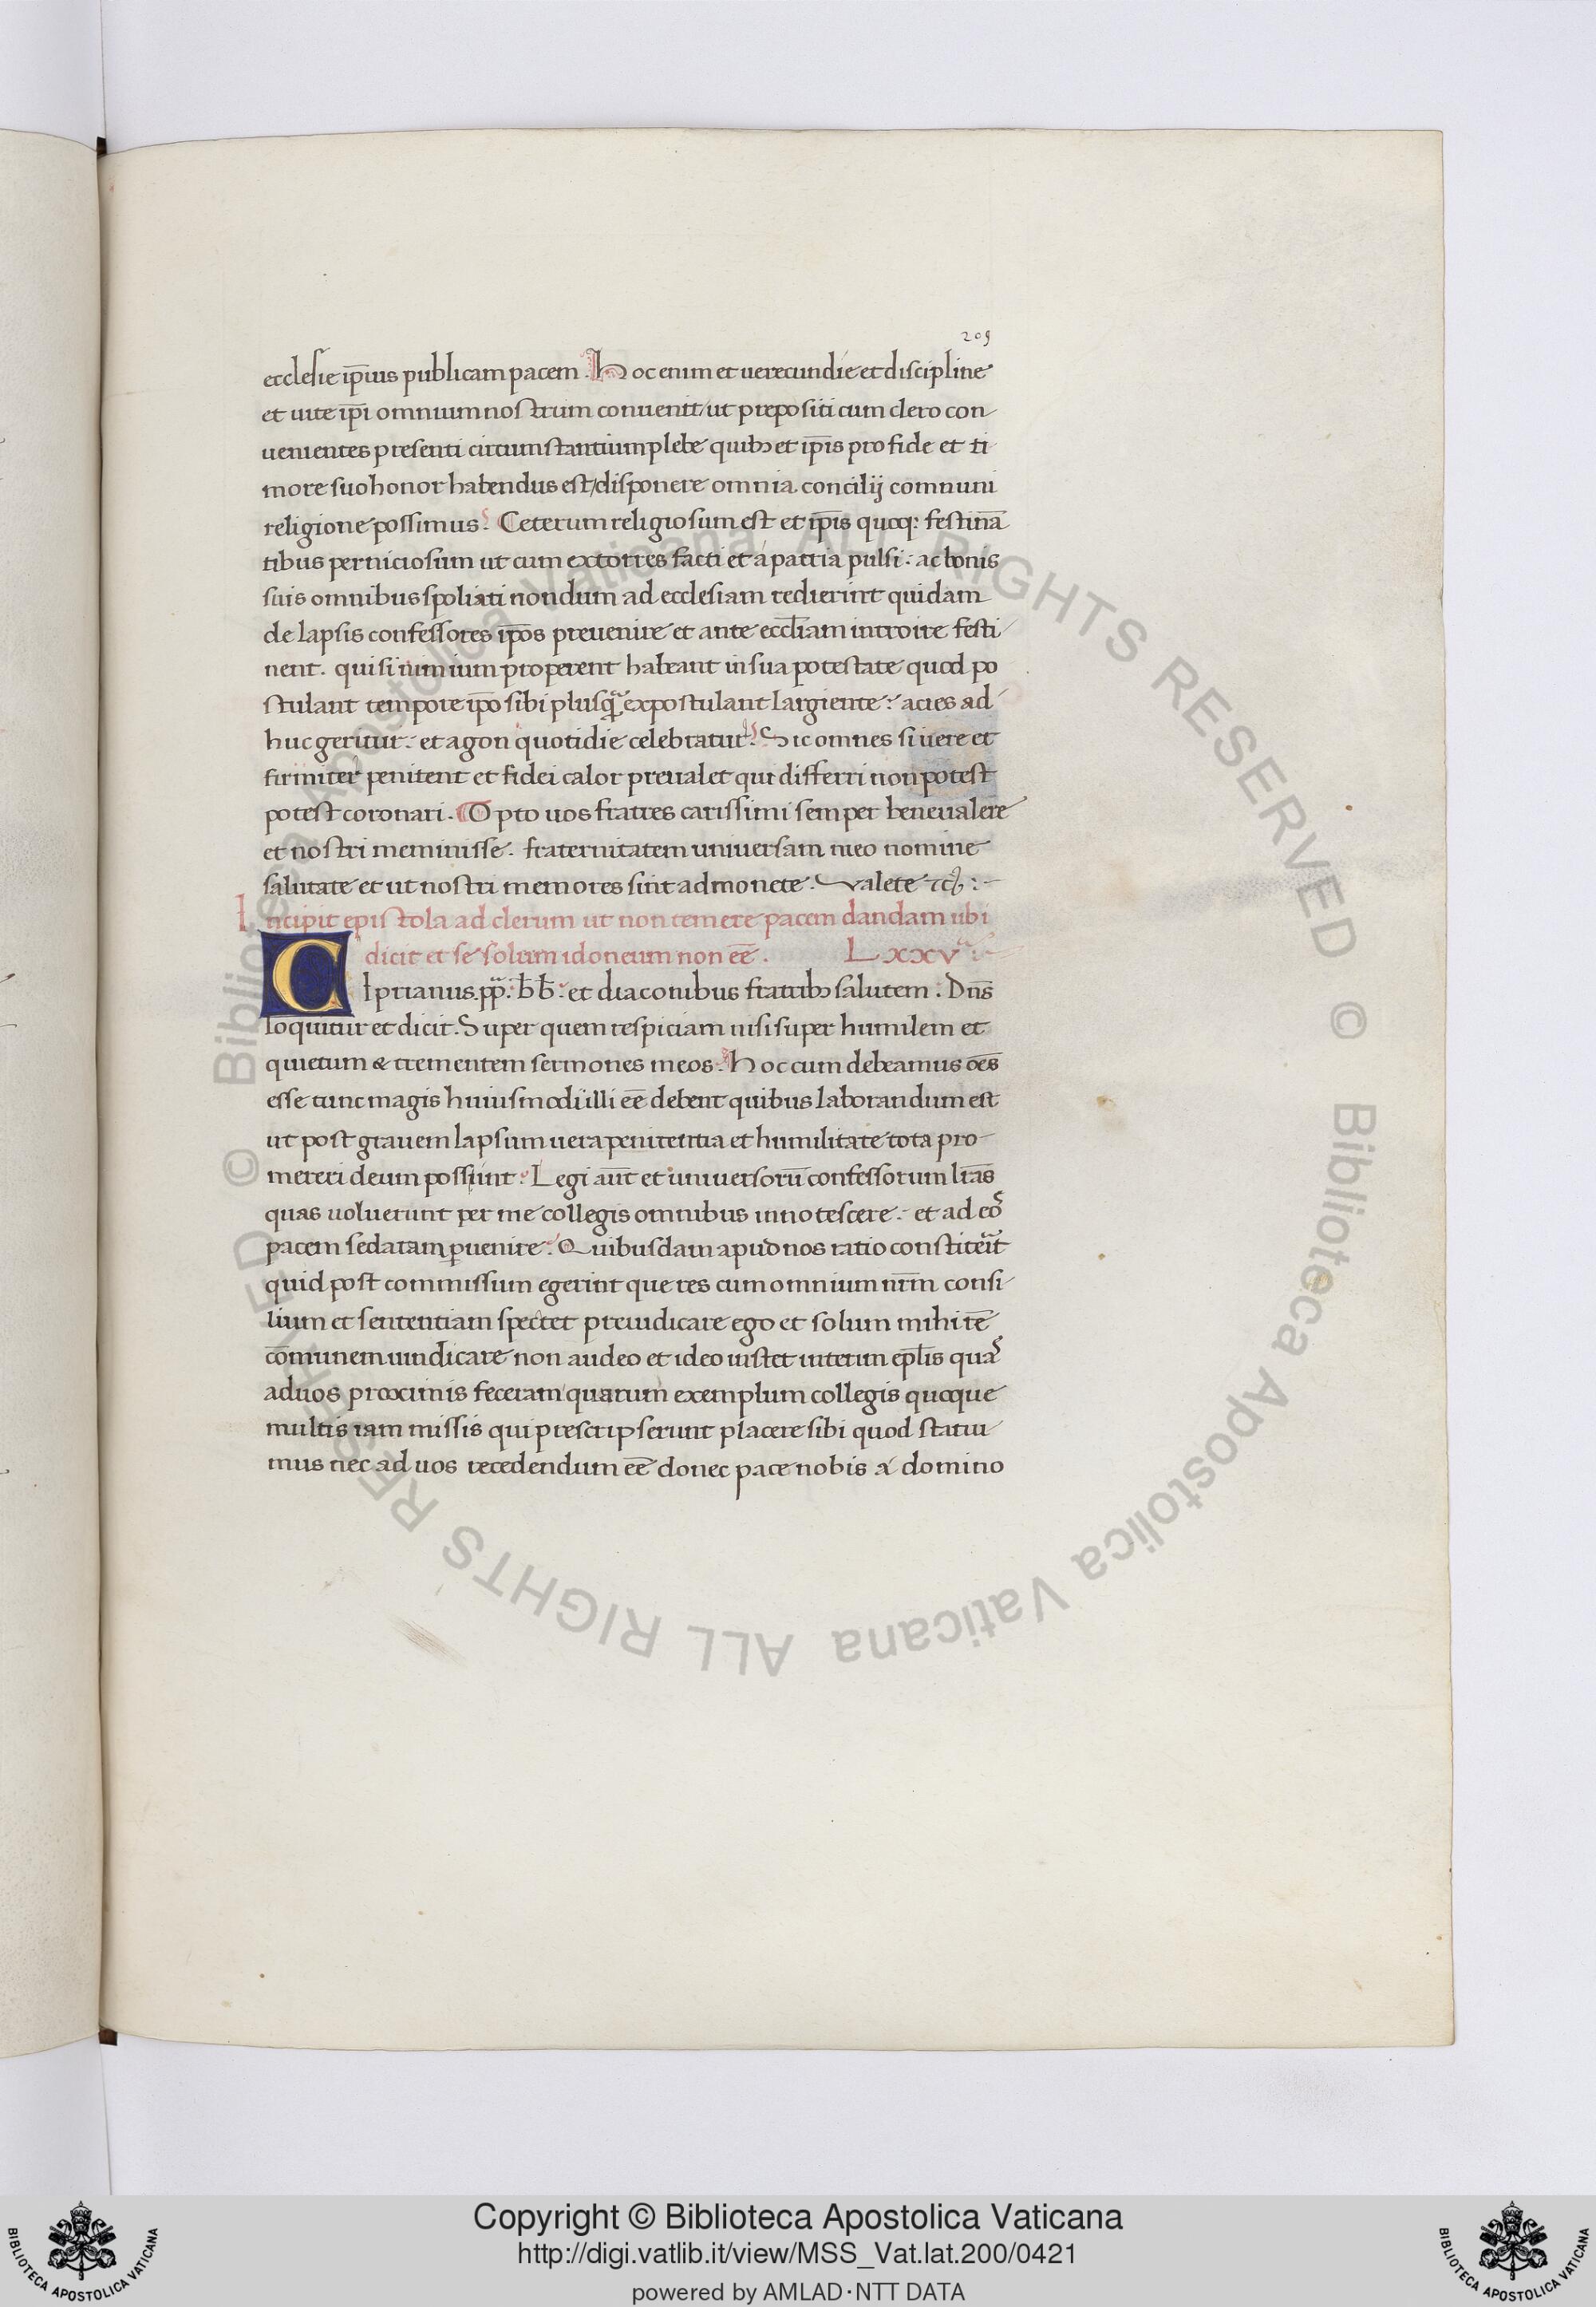 209
ecclesie ip̅ius publicam pacem. Hoc enim et uerecundie et discipline
et uite ip̅i omnium nostrum conuenit/ut prepositi cum clero con
uenientes presenti circumstantium plebe quibꝫ et ip̅is pro fide et ti
more suo honor habendus est/disponere omnia concilij comnuni
religione possimus. Ceterum religiosum est et ip̅is quoqꝫ festinā
tibus perniciosum ut cum extorres facti et a patria pulsi: ac bonis
suis omnibus spoliati nondum ad ecclesiam redierint quidam
de lapsis confessores ip̅os preuenire et ante eccl̅iam introire festi
nent. qui si nimium properent habeant in sua potestate quod po
stulant tempore ip̅o sibi plusq̃ expostulant largiente: acies ad
huc geritur: et agon quotidie celebratur. Sic omnes si uere et
firmiter penitent et fidei calor preualet qui differri non potest
potest coronari. Opto uos fratres carissimi semper bene ualere
et nostri meminisse. fraternitatem uniuersam meo nomine
salutate et ut nostri memores sint admonete. Valete
Incipit epistola ad clerum ut non temere pacem dandam ubi
dicit et se solum idoneum non eē. LXXVᵃ:
CIprianus. pp̃. b̅b̅. et diaconibus fratribꝫ salutem. Dn̅s
loquitur et dicit. Super quem respiciam nisi super humilem et
quietum & trementem sermones meos. Hoc cum debeamus oēs
esse tunc magis huiusmodi illi eē debent quibus laborandum est
ut post grauem lapsum uera penitentia et humilitate tota pro
mereri deum possunt. Legi aūt et uniuersorū confessorum lr̅as
quas uoluerunt per me collegis omnibus innotescere: et ad eoꝰ
pacem sedatam ꝑuenire. Quibusdam apud nos ratio constiterit
quid post commissum egerint que res cum omnium nr̅m consi
lium et sententiam spectet preiudicare ego et solum mihi rē
cōmunem uindicare non audeo et ideo instet interim epl̅is quaꝰ
ad uos proximis feceram quarum exemplum collegis quoque
multis iam missis qui prescripserunt placere sibi quod statui
mus nec ad uos recedendum eē donec pace nobis a domino
Copyright © Biblioteca Apostolica Vaticana
http://digi.vatlib.it/view/MSS_Vat.lat.200/0421
powered by AMLAD·NTT DATA
BIBLIOTECA APOSTOLICA VATICANA
BIBLIOTECA APOSTOLICA VATICANA
© Biblioteca Apostolica Vaticana ALL RIGHTS RESERVED © Biblioteca Apostolica Vaticana ALL RIGHTS RESERVED